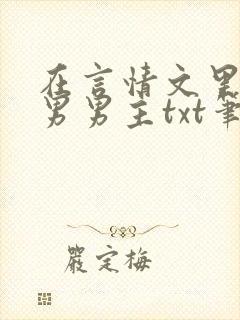 在言情文里
男男主txt笔
嚴定梅